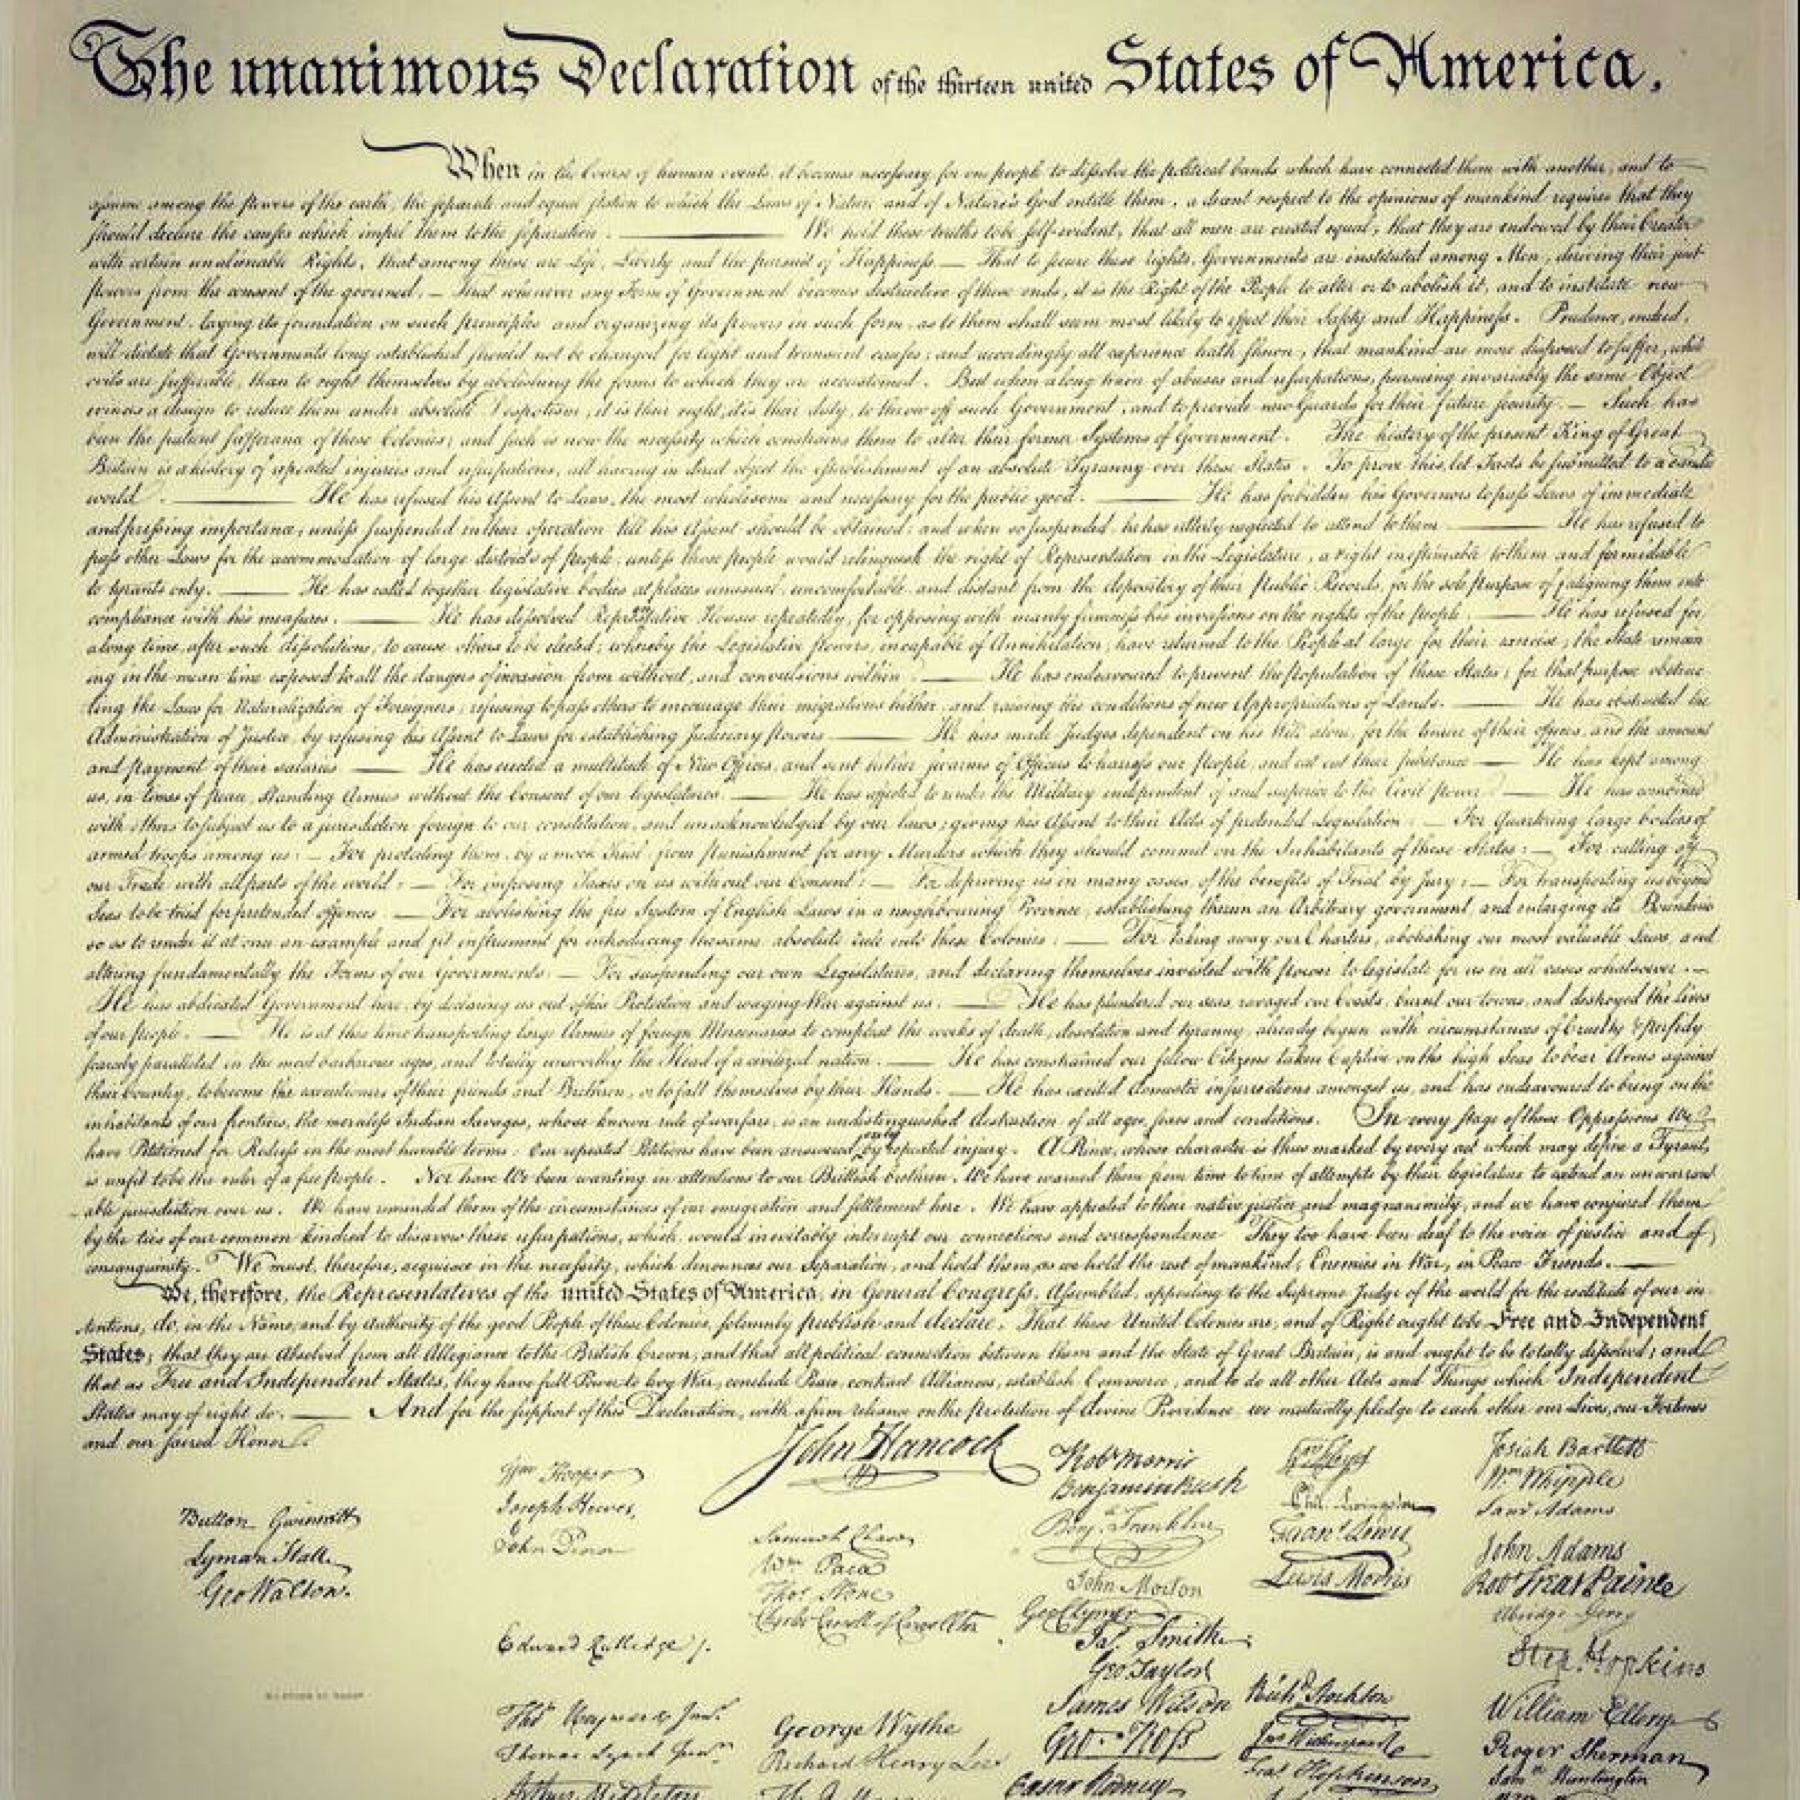 The unanimous Declaration of the thirteen united States of America.
When in the Course of human events, it becomes necessary for one people to dissolve the political bands which have connected them with another, and to
assume among the powers of the earth, the separate and equal station to which the Laws of Nature and of Nature's God entitle them, a decent respect to the opinions of mankind requires that they
should declare the causes which impel them to the separation. — We hold these truths to be self-evident, that all men are created equal, that they are endowed by their Creator
with certain unalienable Rights, that among these are Life, Liberty and the pursuit of Happiness. — That to secure these rights, Governments are instituted among Men, deriving their just
powers from the consent of the governed, — That whenever any Form of Government becomes destructive of these ends, it is the Right of the People to alter or to abolish it, and to institute new
Government, laying its foundation on such principles and organizing its powers in such form, as to them shall seem most likely to effect their Safety and Happiness. Prudence, indeed,
will dictate that Governments long established should not be changed for light and transient causes; and accordingly all experience hath shewn, that mankind are more disposed to suffer, while
evils are sufferable, than to right themselves by abolishing the forms to which they are accustomed. But when a long train of abuses and usurpations, pursuing invariably the same Object
evinces a design to reduce them under absolute Despotism, it is their right, it is their duty, to throw off such Government, and to provide new Guards for their future security. — Such has
been the patient sufferance of these Colonies; and such is now the necessity which constrains them to alter their former Systems of Government. The history of the present King of Great
Britain is a history of repeated injuries and usurpations, all having in direct object the establishment of an absolute Tyranny over these States. To prove this, let Facts be submitted to a candid
world. — He has refused his Assent to Laws, the most wholesome and necessary for the public good. — He has forbidden his Governors to pass Laws of immediate
and pressing importance, unless suspended in their operation till his Assent should be obtained; and when so suspended, he has utterly neglected to attend to them. — He has refused to
pass other Laws for the accommodation of large districts of people, unless those people would relinquish the right of Representation in the Legislature, a right inestimable to them and formidable
to tyrants only. — He has called together legislative bodies at places unusual, uncomfortable, and distant from the depository of their Public Records, for the sole purpose of fatiguing them into
compliance with his measures. — He has dissolved Representative Houses repeatedly, for opposing with manly firmness his invasions on the rights of the people. — He has refused for
a long time, after such dissolutions, to cause others to be elected; whereby the Legislative powers, incapable of Annihilation, have returned to the People at large for their exercise; the State remain
ing in the mean time exposed to all the dangers of invasion from without, and convulsions within. — He has endeavoured to prevent the population of these States; for that purpose obstruc
ting the Laws for Naturalization of Foreigners; refusing to pass others to encourage their migrations hither, and raising the conditions of new Appropriations of Lands. — He has obstructed the
Administration of Justice, by refusing his Assent to Laws for establishing Judiciary powers. — He has made Judges dependent on his Will alone, for the tenure of their offices, and the amount
and payment of their salaries. — He has erected a multitude of New Offices, and sent hither swarms of Officers to harrass our people, and eat out their substance. — He has kept among
us, in times of peace, Standing Armies without the Consent of our legislatures. — He has affected to render the Military independent of and superior to the Civil power. — He has combined
with others to subject us to a jurisdiction foreign to our constitution, and unacknowledged by our laws; giving his Assent to their Acts of pretended Legislation: — For Quartering large bodies of
armed troops among us: — For protecting them, by a mock Trial, from punishment for any Murders which they should commit on the Inhabitants of these States: — For cutting off
our Trade with all parts of the world: — For imposing Taxes on us without our Consent: — For depriving us in many cases, of the benefits of Trial by Jury: — For transporting us beyond
Seas to be tried for pretended offences — For abolishing the free System of English Laws in a neighbouring Province, establishing therein an Arbitrary government, and enlarging its Boundaries
so as to render it at once an example and fit instrument for introducing the same absolute rule into these Colonies: — For taking away our Charters, abolishing our most valuable Laws, and
altering fundamentally the Forms of our Governments: — For suspending our own Legislatures, and declaring themselves invested with power to legislate for us in all cases whatsoever. —
He has abdicated Government here, by declaring us out of his Protection and waging War against us. — He has plundered our seas, ravaged our Coasts, burnt our towns, and destroyed the lives
of our people. — He is at this time transporting large Armies of foreign Mercenaries to compleat the works of death, desolation and tyranny, already begun with circumstances of Cruelty & perfidy
scarcely paralleled in the most barbarous ages, and totally unworthy the Head of a civilized nation. — He has constrained our fellow Citizens taken Captive on the high Seas to bear Arms against
their Country, to become the executioners of their friends and Brethren, or to fall themselves by their Hands. — He has excited domestic insurrections amongst us, and has endeavoured to bring on the
inhabitants of our frontiers, the merciless Indian Savages, whose known rule of warfare, is an undistinguished destruction of all ages, sexes and conditions. In every stage of these Oppressions We
have Petitioned for Redress in the most humble terms: Our repeated Petitions have been answered only by repeated injury. A Prince, whose character is thus marked by every act which may define a Tyrant,
is unfit to be the ruler of a free people. Nor have We been wanting in attentions to our Brittish brethren. We have warned them from time to time of attempts by their legislature to extend an unwarrant
able jurisdiction over us. We have reminded them of the circumstances of our emigration and settlement here. We have appealed to their native justice and magnanimity, and we have conjured them
by the ties of our common kindred to disavow these usurpations, which, would inevitably interrupt our connections and correspondence They too have been deaf to the voice of justice and of
consanguinity. We must, therefore, acquiesce in the necessity, which denounces our Separation, and hold them, as we hold the rest of mankind, Enemies in War, in Peace Friends. —
We, therefore, the Representatives of the united States of America, in General Congress, Assembled, appealing to the Supreme Judge of the world for the rectitude of our in
tentions, do, in the Name, and by Authority of the good People of these Colonies, solemnly publish and declare, That these United Colonies are, and of Right ought to be Free and Independent
States; that they are Absolved from all Allegiance to the British Crown, and that all political connection between them and the State of Great Britain, is and ought to be totally dissolved; and
that as Free and Independent States, they have full Power to levy War, conclude Peace, contract Alliances, establish Commerce, and to do all other Acts and Things which Independent
States may of right do. — And for the support of this Declaration, with a firm reliance on the protection of divine Providence, we mutually pledge to each other our Lives, our Fortunes
and our sacred Honor.
Button Gwinnett
Lyman Hall
Geo Walton.
Wm Hooper
Joseph Hewes,
John Penn
Edward Rutledge /.
Thos Heyward Junr.
Thomas Lynch Junr.
Arthur Middleton
John Hancock
Samuel Chase
Wm Paca
Thos Stone
Charles Carroll of Carrollton
George Wythe
Richard Henry Lee
Robt Morris
Benjamin Rush
Benj. Franklin
John Morton
Geo Clymer
Jas. Smith
Geo. Taylor
James Wilson
Geo. Ross
Caesar Rodney
Wm Floyd
Phil. Livingston
Frans. Lewis
Lewis Morris
Richd. Stockton
Jno Witherspoon
Fras. Hopkinson
Josiah Bartlett
Wm Whipple
Saml Adams
John Adams
Robt Treat Paine
Elbridge Gerry
Step. Hopkins
William Ellery
Roger Sherman
Samel Huntington